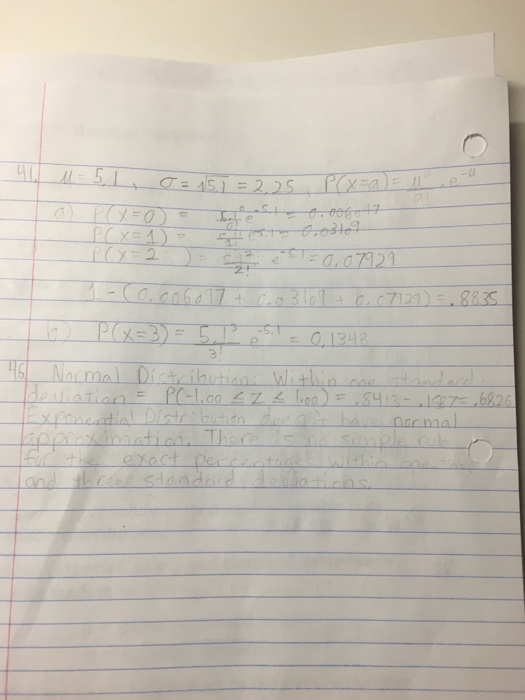 41. μ = 5.1, σ = √5.1 = 2.25, P(x=a) = μ^a/a! · e^-μ
a) P(x=0) = 5.1^0/0! e^-5.1 = 0.006097
P(x=1) = 5.1^1/1! e^-5.1 = 0.03109
P(x=2) = 5.1^2/2! e^-5.1 = 0.07929
1 - (0.006097 + 0.03109 + 0.07929) = .8835
b) P(x=3) = 5.1^3/3! e^-5.1 = 0.1348
46. Normal Distribution: Within one standard
deviation = P(-1.00 ≤ Z ≤ 1.00) = .8413 - .1587 = .6826
Exponential Distribution doesn't have normal
approximation. There is no simple rule
for the exact percentages within one, two
and three standard deviations.